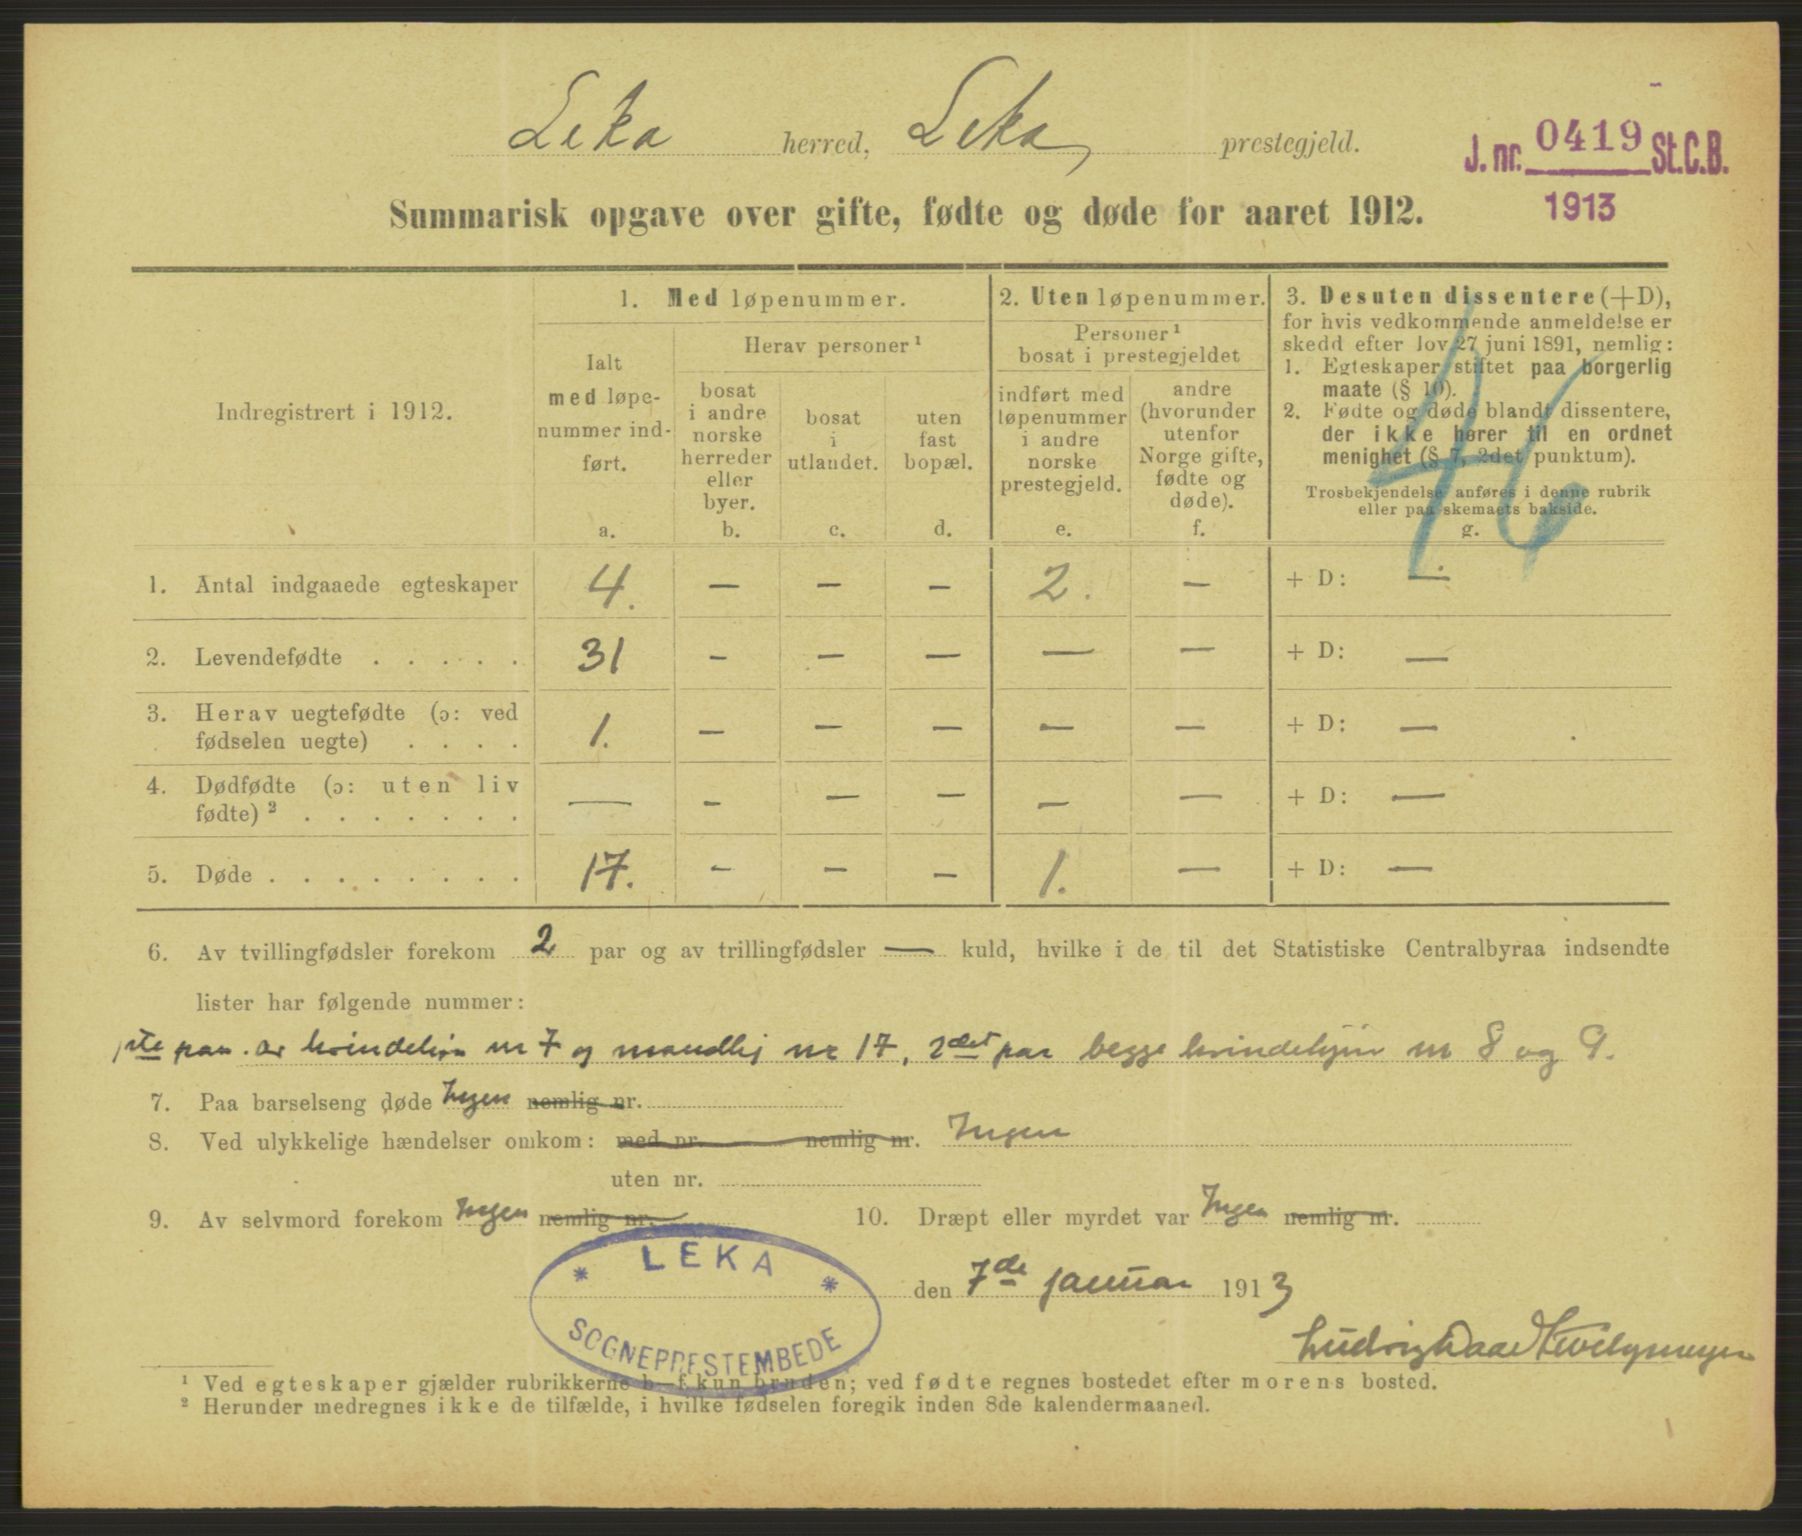 Leka herred, Leka prestegjeld.
J. nr. 0419 St.C.B.
1913
Summarisk opgave over gifte, fødte og døde for aaret 1912.
Indregistrert i 1912.
1. Med løpenummer.
Ialt med løpenummer indført.
a.
Herav personer ¹
bosat i andre norske herreder eller byer.
b.
bosat i utlandet.
c.
uten fast bopæl.
d.
2. Uten løpenummer.
Personer ¹ bosat i prestegjeldet
indført med løpenummer i andre norske prestegjeld.
e.
andre (hvorunder utenfor Norge gifte, fødte og døde).
f.
3. Desuten dissentere (+D),
for hvis vedkommende anmeldelse er
skedd efter lov 27 juni 1891, nemlig:
1. Egteskaper stiftet paa borgerlig
maate (§ 10).
2. Fødte og døde blandt dissentere,
der ikke hører til en ordnet
menighet (§ 7, 2det punktum).
Trosbekjendelse anføres i denne rubrik
eller paa skemaets bakside.
g.
76
1. Antal indgaaede egteskaper 4. — — — 2. — + D: —
2. Levendefødte . . . . . 31 — — — — — + D: —
3. Herav uegtefødte (ɔ: ved
fødselen uegte) . . . . 1. — — — — — + D: —
4. Dødfødte (ɔ: uten liv
fødte) ² . . . . . . . — — — — — — + D: —
5. Døde . . . . . . . . 17. — — — 1. — + D: —
6. Av tvillingfødsler forekom 2 par og av trillingfødsler — kuld, hvilke i de til det Statistiske Centralbyraa indsendte
lister har følgende nummer:
1ste par. av kvindekjøn nr 7 og mandkj nr 17, 2det par begge kvindekjøn nr 8 og 9.
7. Paa barselseng døde Ingen nemlig nr.
8. Ved ulykkelige hændelser omkom: med nr. nemlig nr. Ingen
uten nr.
9. Av selvmord forekom Ingen nemlig nr. 10. Dræpt eller myrdet var Ingen nemlig nr.
LEKA
SOGNEPRESTEMBEDE
den 7de januar 1913
Ludvig Daae
¹ Ved egteskaper gjælder rubrikkerne b—f kun bruden; ved fødte regnes bostedet efter morens bosted.
² Herunder medregnes ikke de tilfælde, i hvilke fødselen foregik inden 8de kalendermaaned.